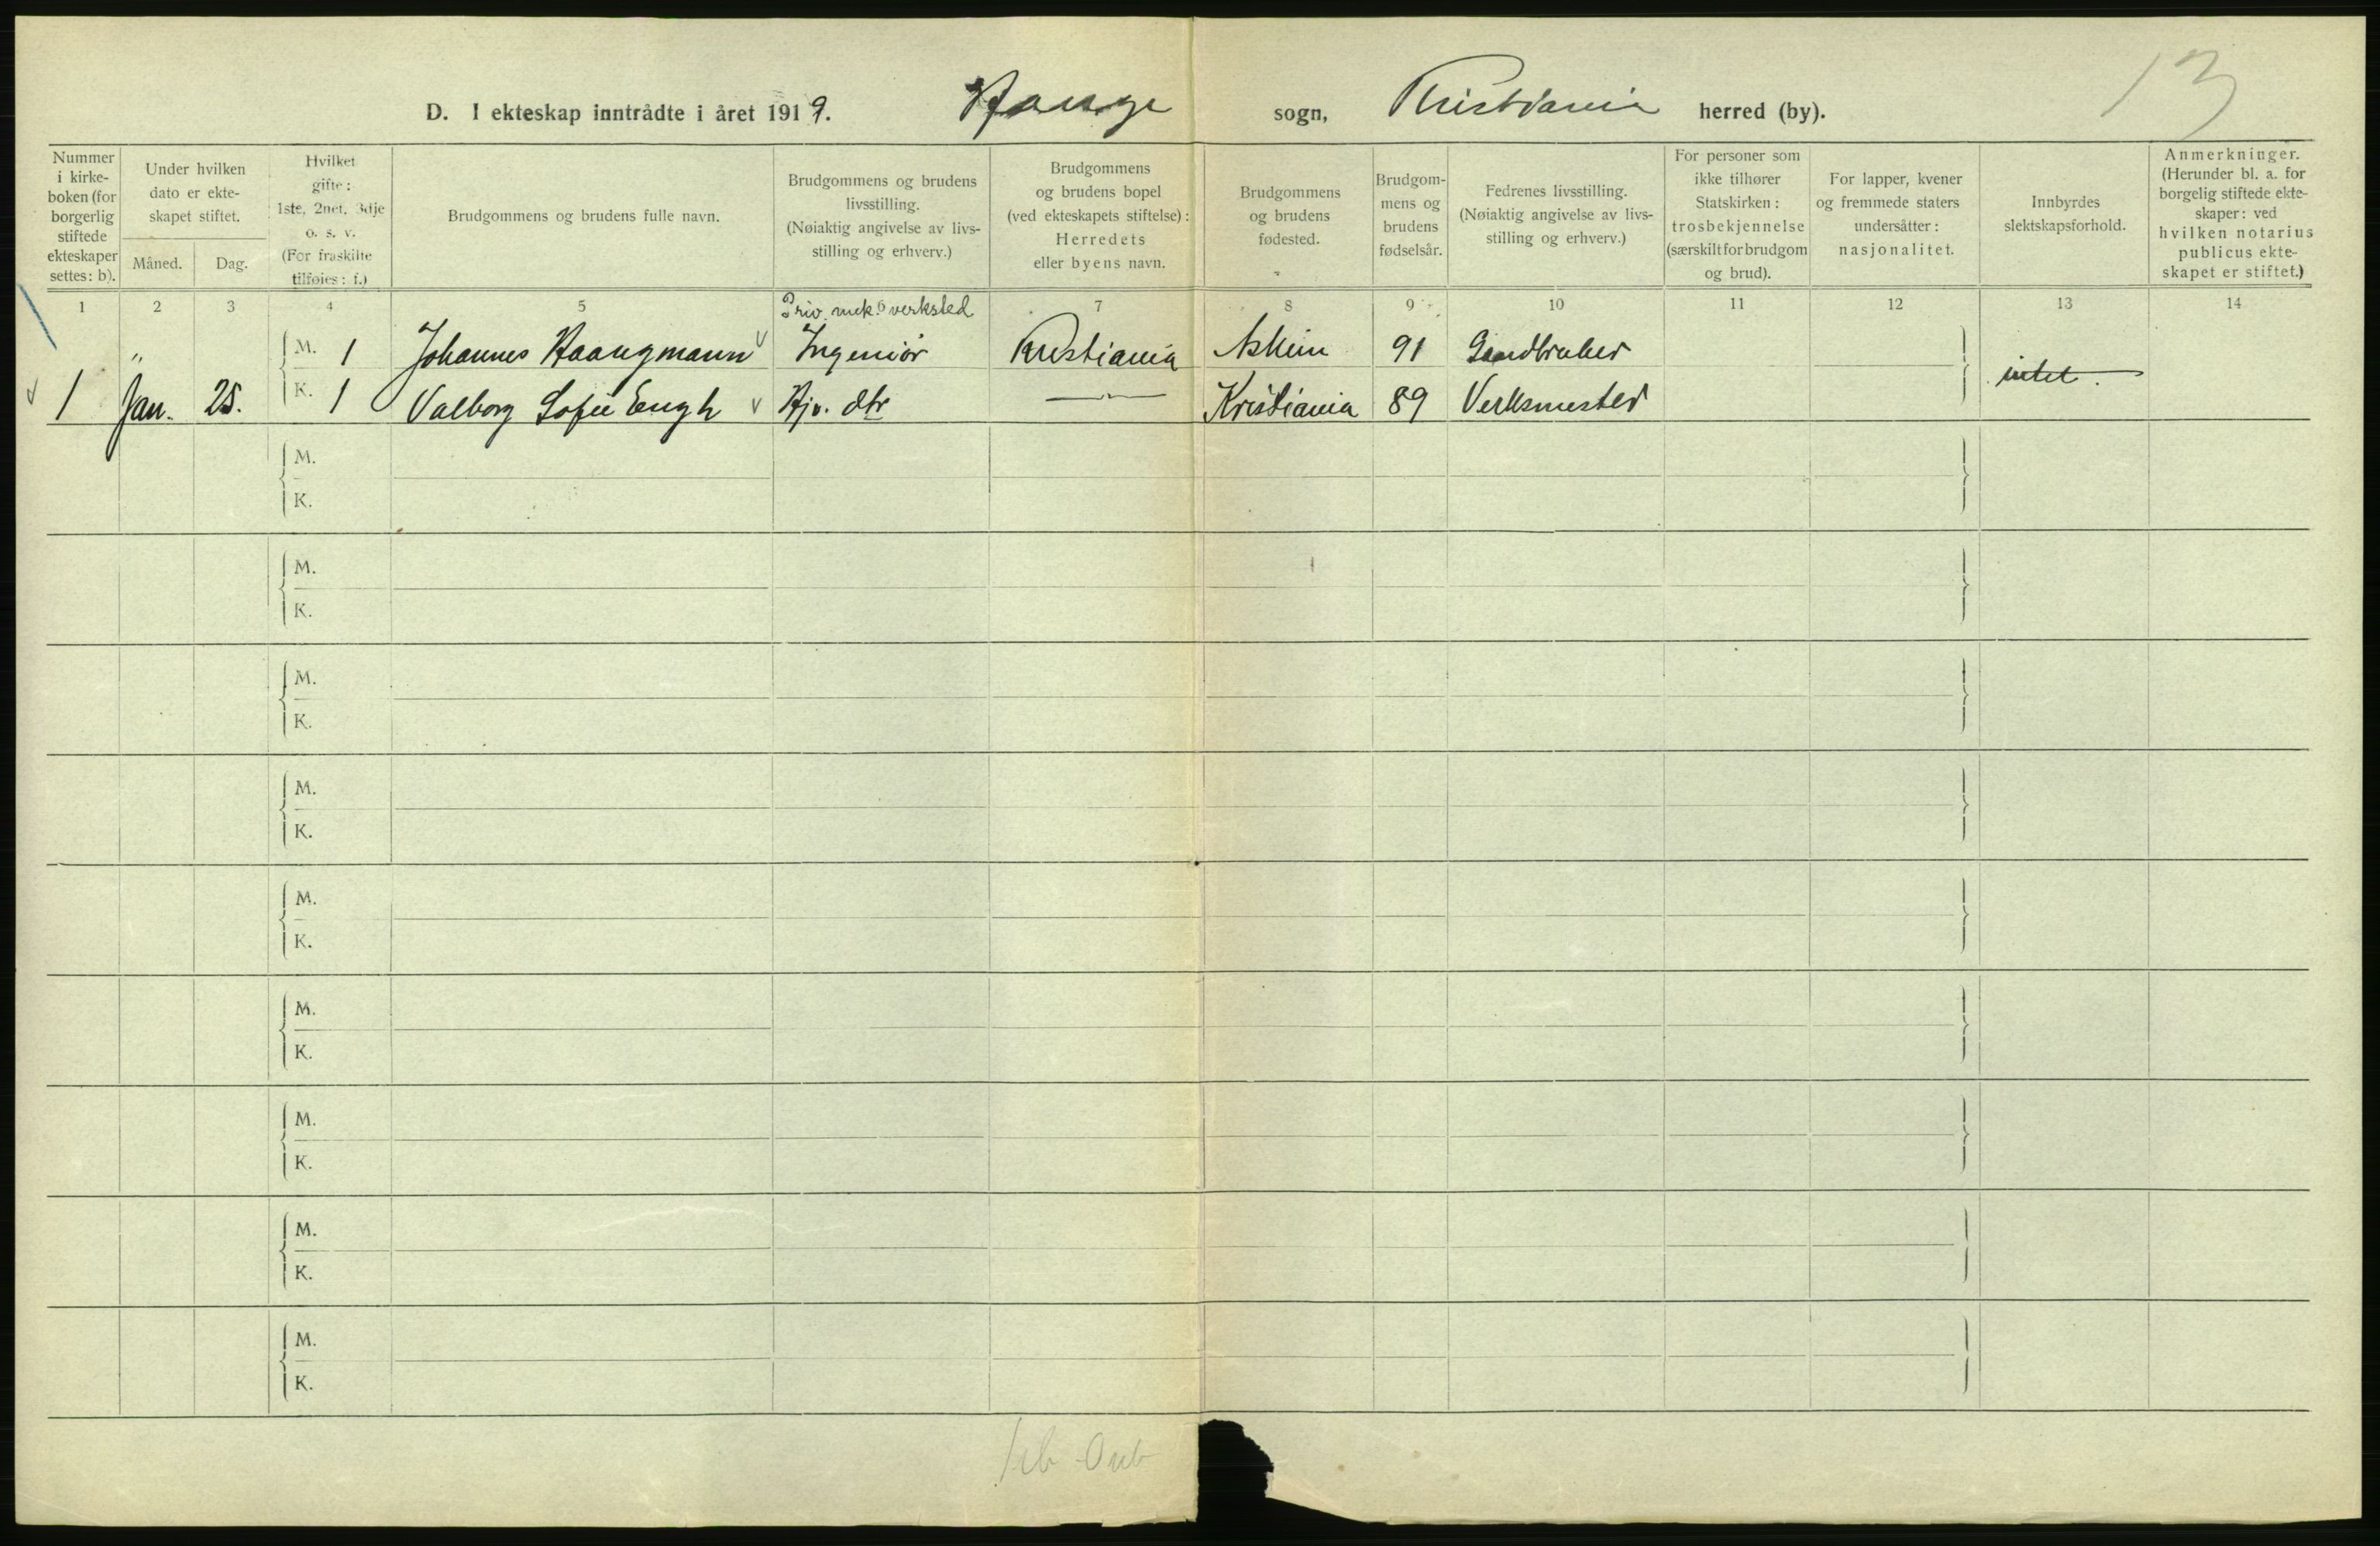 13
D. I ekteskap inntrådte i året 1919. Hauge sogn, Kristiania herred (by).
Nummer i kirke-boken (for borgerlig stiftede ekteskaper settes: b).
Under hvilken dato er ekte-skapet stiftet.
Måned. Dag.
Hvilket gifte: 1ste, 2net, 3dje o. s. v. (For fraskilte tilføies: f.)
Brudgommens og brudens fulle navn.
Brudgommens og brudens livsstilling. (Nøiaktig angivelse av livs-stilling og erhverv.)
Brudgommens og brudens bopel (ved ekteskapets stiftelse): Herredets eller byens navn.
Brudgommens og brudens fødested.
Brudgom-mens og brudens fødselsår.
Fedrenes livsstilling. (Nøiaktig angivelse av livs-stilling og erhverv.)
For personer som ikke tilhører Statskirken: trosbekjennelse (særskilt for brudgom og brud).
For lapper, kvener og fremmede staters undersåtter: nasjonalitet.
Innbyrdes slektskapsforhold.
Anmerkninger. (Herunder bl. a. for borgelig stiftede ekte-skaper: ved hvilken notarius publicus ekte-skapet er stiftet.)
1 2 3 4 5 6 7 8 9 10 11 12 13 14
Priv. mek. verksted
" M. 1 Johannes Haangmann Ingeniör Kristiania Askim 91 Gaardbruker
intet.
1 Jan. 25. K. 1 Valborg Sofie Engh Hjv. dtr —"— Kristiania 89 Verksmester
M.
K.
M.
K.
M.
K.
M.
K.
M.
K.
M.
K.
M.
K.
M.
K.
M.
K.